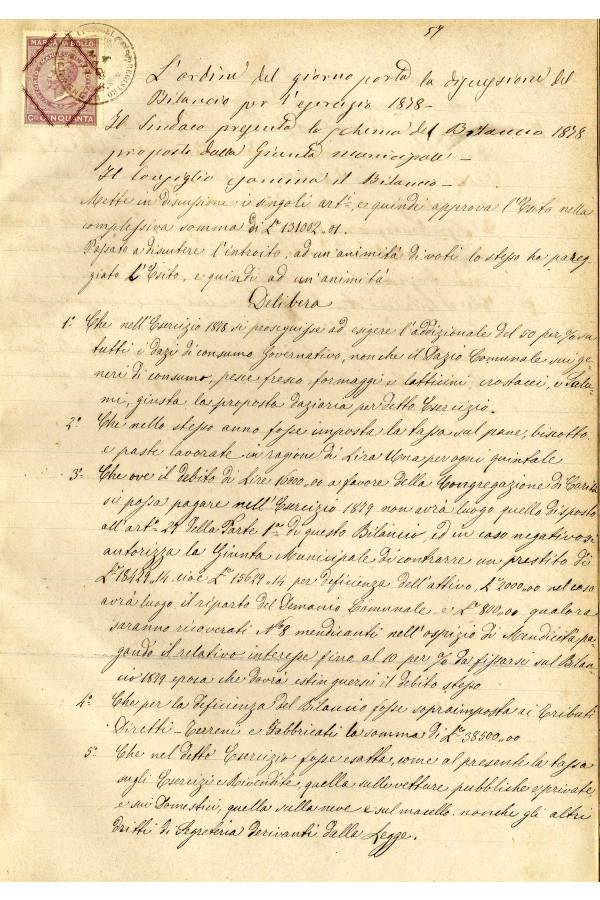 57
MARCA DA BOLLO
CMI CINQUANTA
L'ordine del giorno porta la discussione del
Bilancio per l'esercizio 1878 -
Il Sindaco presenta lo schema del Bilancio 1878
proposto dalla Giunta municipale -
Il Consiglio esamina il Bilancio -
Mette in discussione i singoli arti, e quindi approva l'Esito nella
complessiva somma di Le 131002.01.
Passato a discutere l'introito, ad un'animità di voti lo stesso ha pareg
giato l'Esito, e quindi ad un'animità
Delibera
1° Che nell'Esercizio 1878 si proseguisse ad esigere l'addizionale del 50 per % su
tutti i dazi di consumo Governativo, non che il Dazio Comunale sui ge
neri di consumo, pesce fresco formaggi e latticini, crostacei, e Salu
mi, giusta la proposta daziaria per detto Esercizio.
2° Che nello stesso anno fosse imposta la tassa sul pane, biscotto
e paste lavorate in ragione di Lira Una per ogni quintale
3° Che ove il debito di Lire 16000,00 a favore della Congregazione di Carità
si possa pagare nell'Esercizio 1879 non avrà luogo quello disposto
all'arto 24 della Parte 1ma di questo Bilancio, ed in caso negativo si
autorizza la Giunta Municipale di contrarre un prestito di
Le 18479.14 cioè Le 15679.14 per deficienza dell'attivo, Le 2000,00 nel caso
avrà luogo il riporto del Demanio Comunale e Le 800,00 qualora
saranno ricoverati No 8 mendicanti nell'ospizio di Mendicità pa
gando il relativo interesse fino al 10 per % da fissarsi sul Bilan
cio 1879 epoca che dovrà estinguersi il debito stesso
4° Che per la deficienza del Bilancio fosse sopraimposta ai Tributi
Diretti - Terreni e Fabbricati la somma di Le 38500,00
5° Che nel detto Esercizio fosse esatta, come al presente la tassa
sugli Esercizi e Rivendite, quella sulle vetture pubbliche e private
e sui Domestici, quella sulla neve e sul macello. nonche gli altri
dritti di Segreteria derivanti dalla Legge.